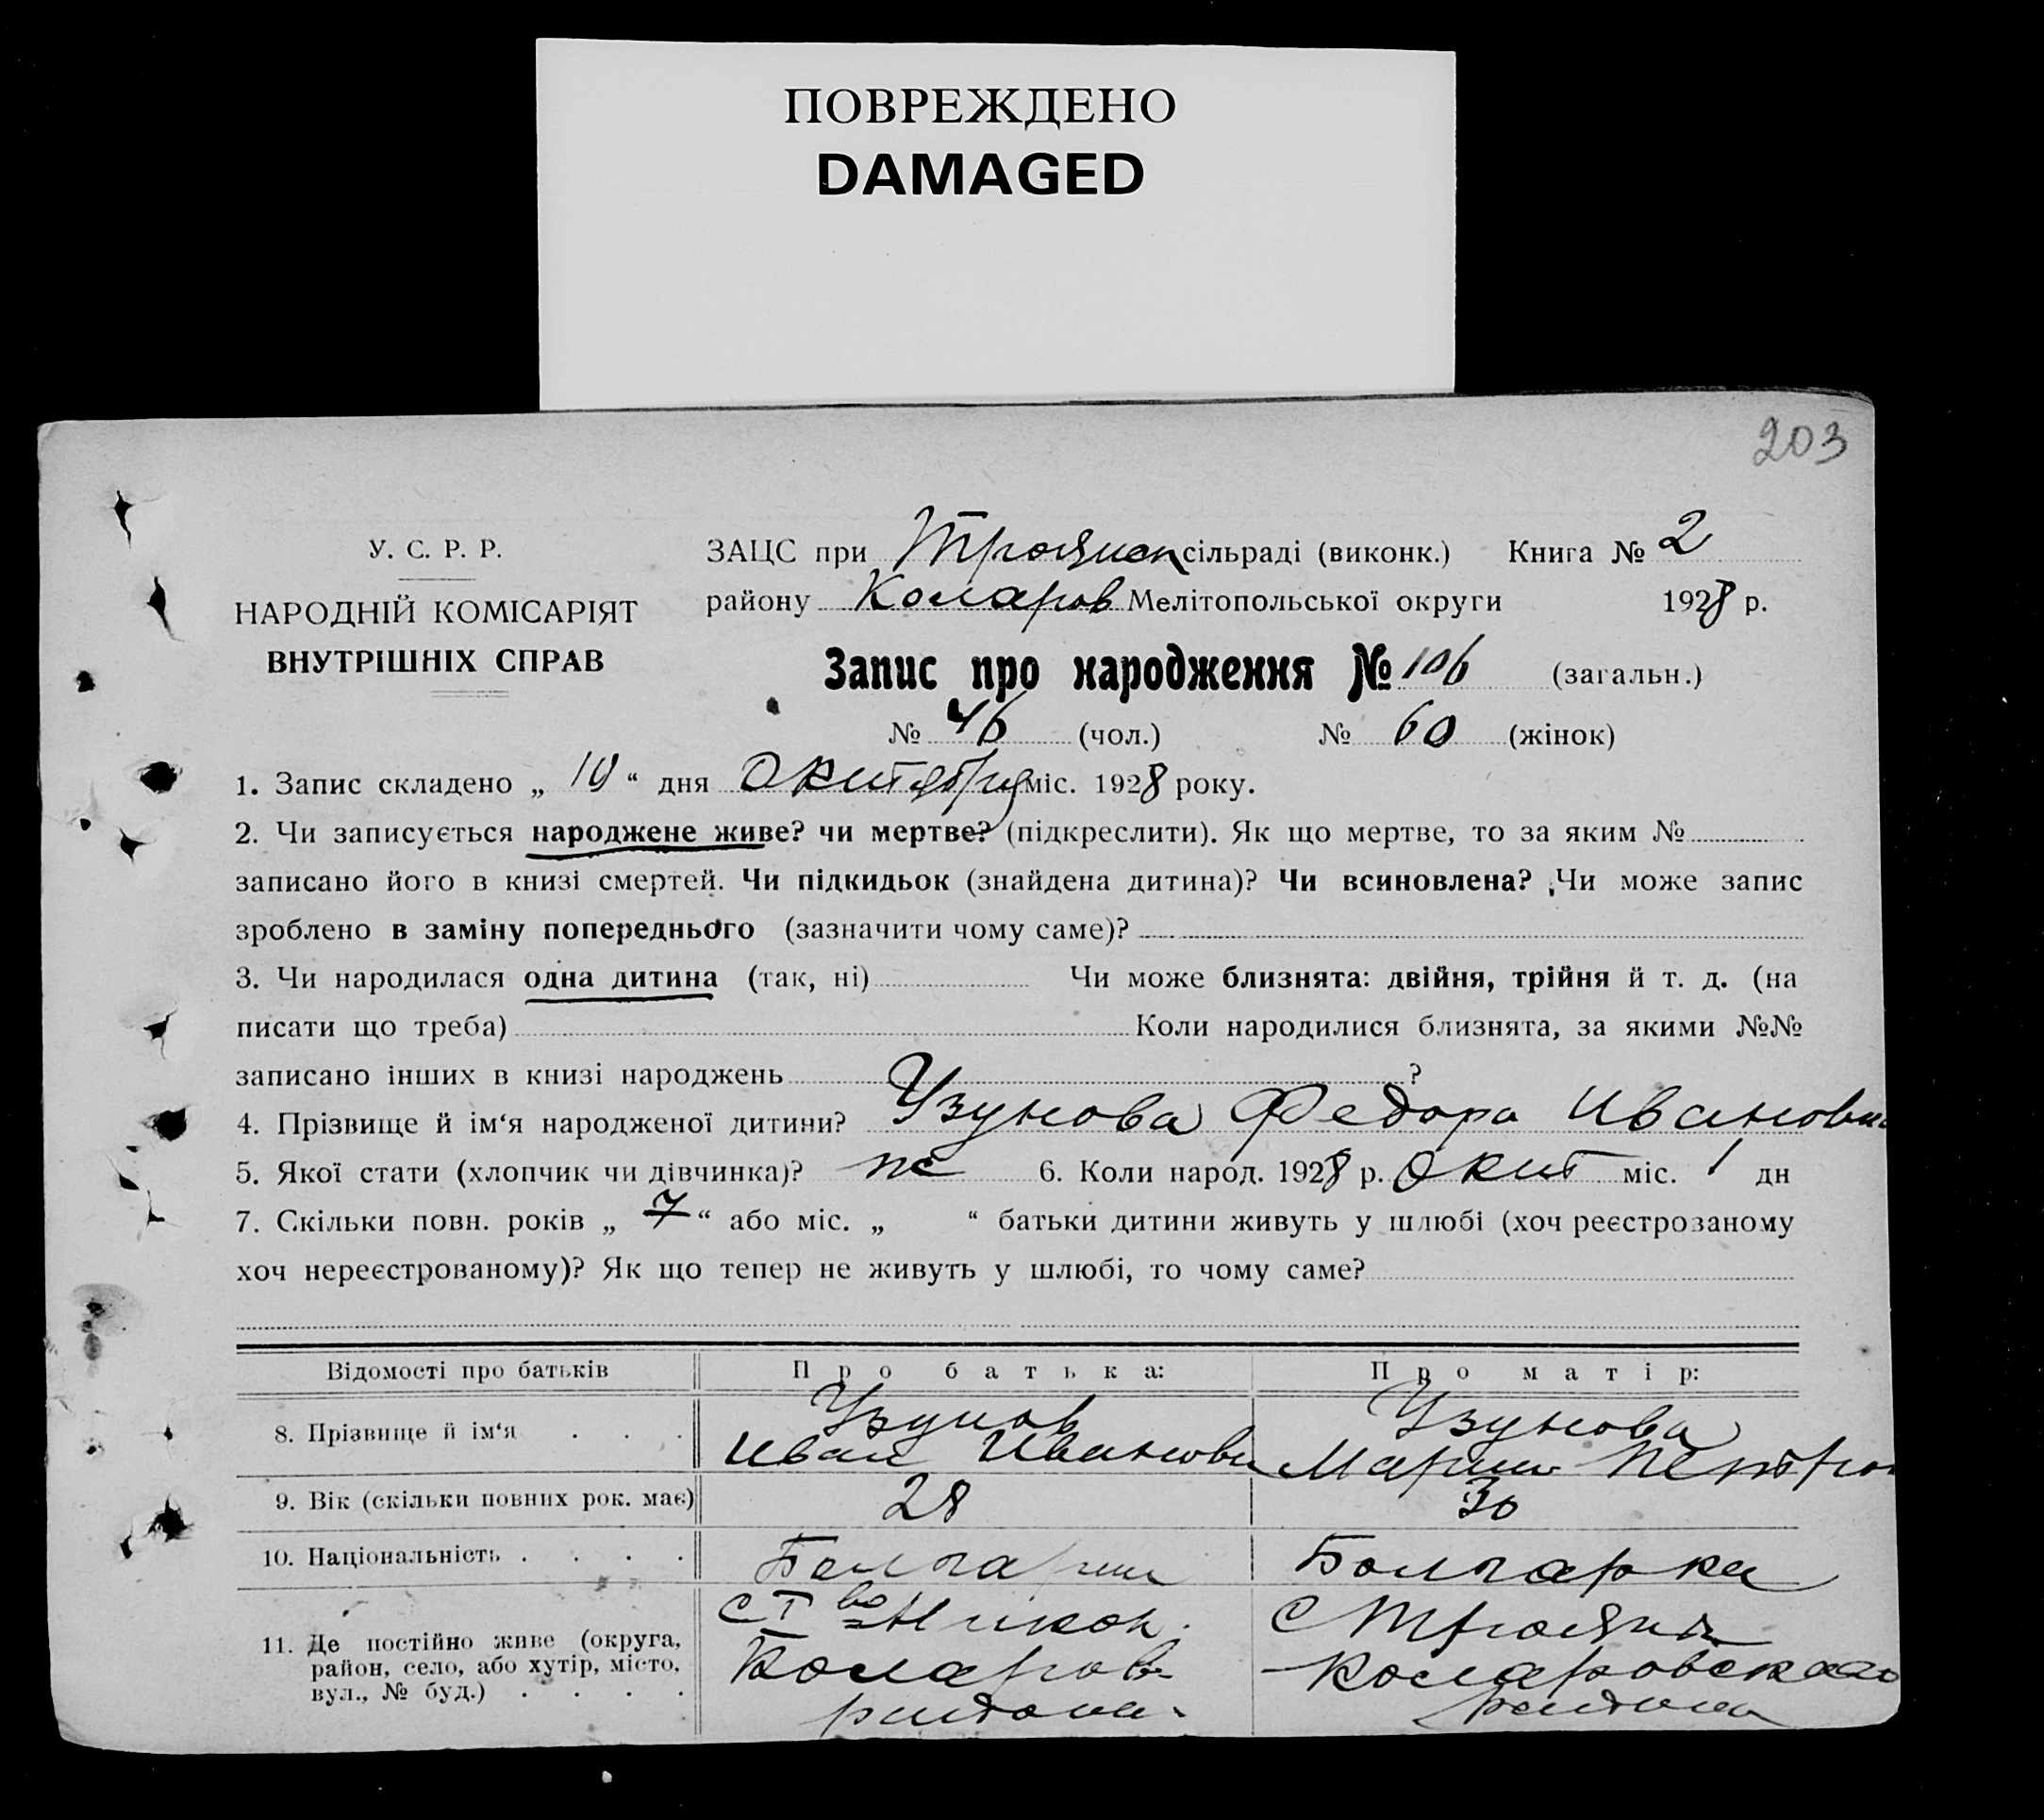 ПОВРЕЖДЕНО
DAMAGED
203
У. С. Р. Р.
НАРОДНІЙ КОМІСАРІЯТ
ВНУТРІШНІХ СПРАВ
ЗАЦС при Троянсільраді (виконк.) Книга № 2
району Коларов Мелітопольської округи 1928 р.
Запис про народження № 106 (загальн.)
№ 46 (чол.) № 60 (жінок)
1. Запис складено „ 10 “ дня Октября міс. 1928 року.
2. Чи записується народжене живе? чи мертве? (підкреслити). Як що мертве, то за яким №
записано його в книзі смертей. Чи підкидьок (знайдена дитина)? Чи всиновлена? Чи може запис
зроблено в заміну попереднього (зазначити чому саме)?
3. Чи народилася одна дитина (так, ні) Чи може близнята: двійня, трійня й т. д. (на
писати що треба) Коли народилися близнята, за якими №№
записано інших в книзі народжень ?
4. Прізвище й ім‘я народженої дитини? Узунова Федора Ивановна
5. Якої стати (хлопчик чи дівчинка)? 6. Коли народ. 1928 р. Окт міс. 1 дн
7. Скільки повн. років „ 7 “ або міс. „ “ батьки дитини живуть у шлюбі (хоч реєстрозаному
хоч нереєстрованому)? Як що тепер не живуть у шлюбі, то чому саме?
Відомості про батьків
Про батька:
Про матір:
8. Прізвище й ім‘я . . .
Узунов
Иван Иванови
Узунова
Мария Петро
9. Вік (скільки повних рок. має)
28
30
10. Національність . . . .
Болгарин
Болгарка
11. Де постійно живе (округа,
район, село, або хутір, місто,
вул., № буд.) . . . .
Коларов
района
С Троян
Коларовскаго
района